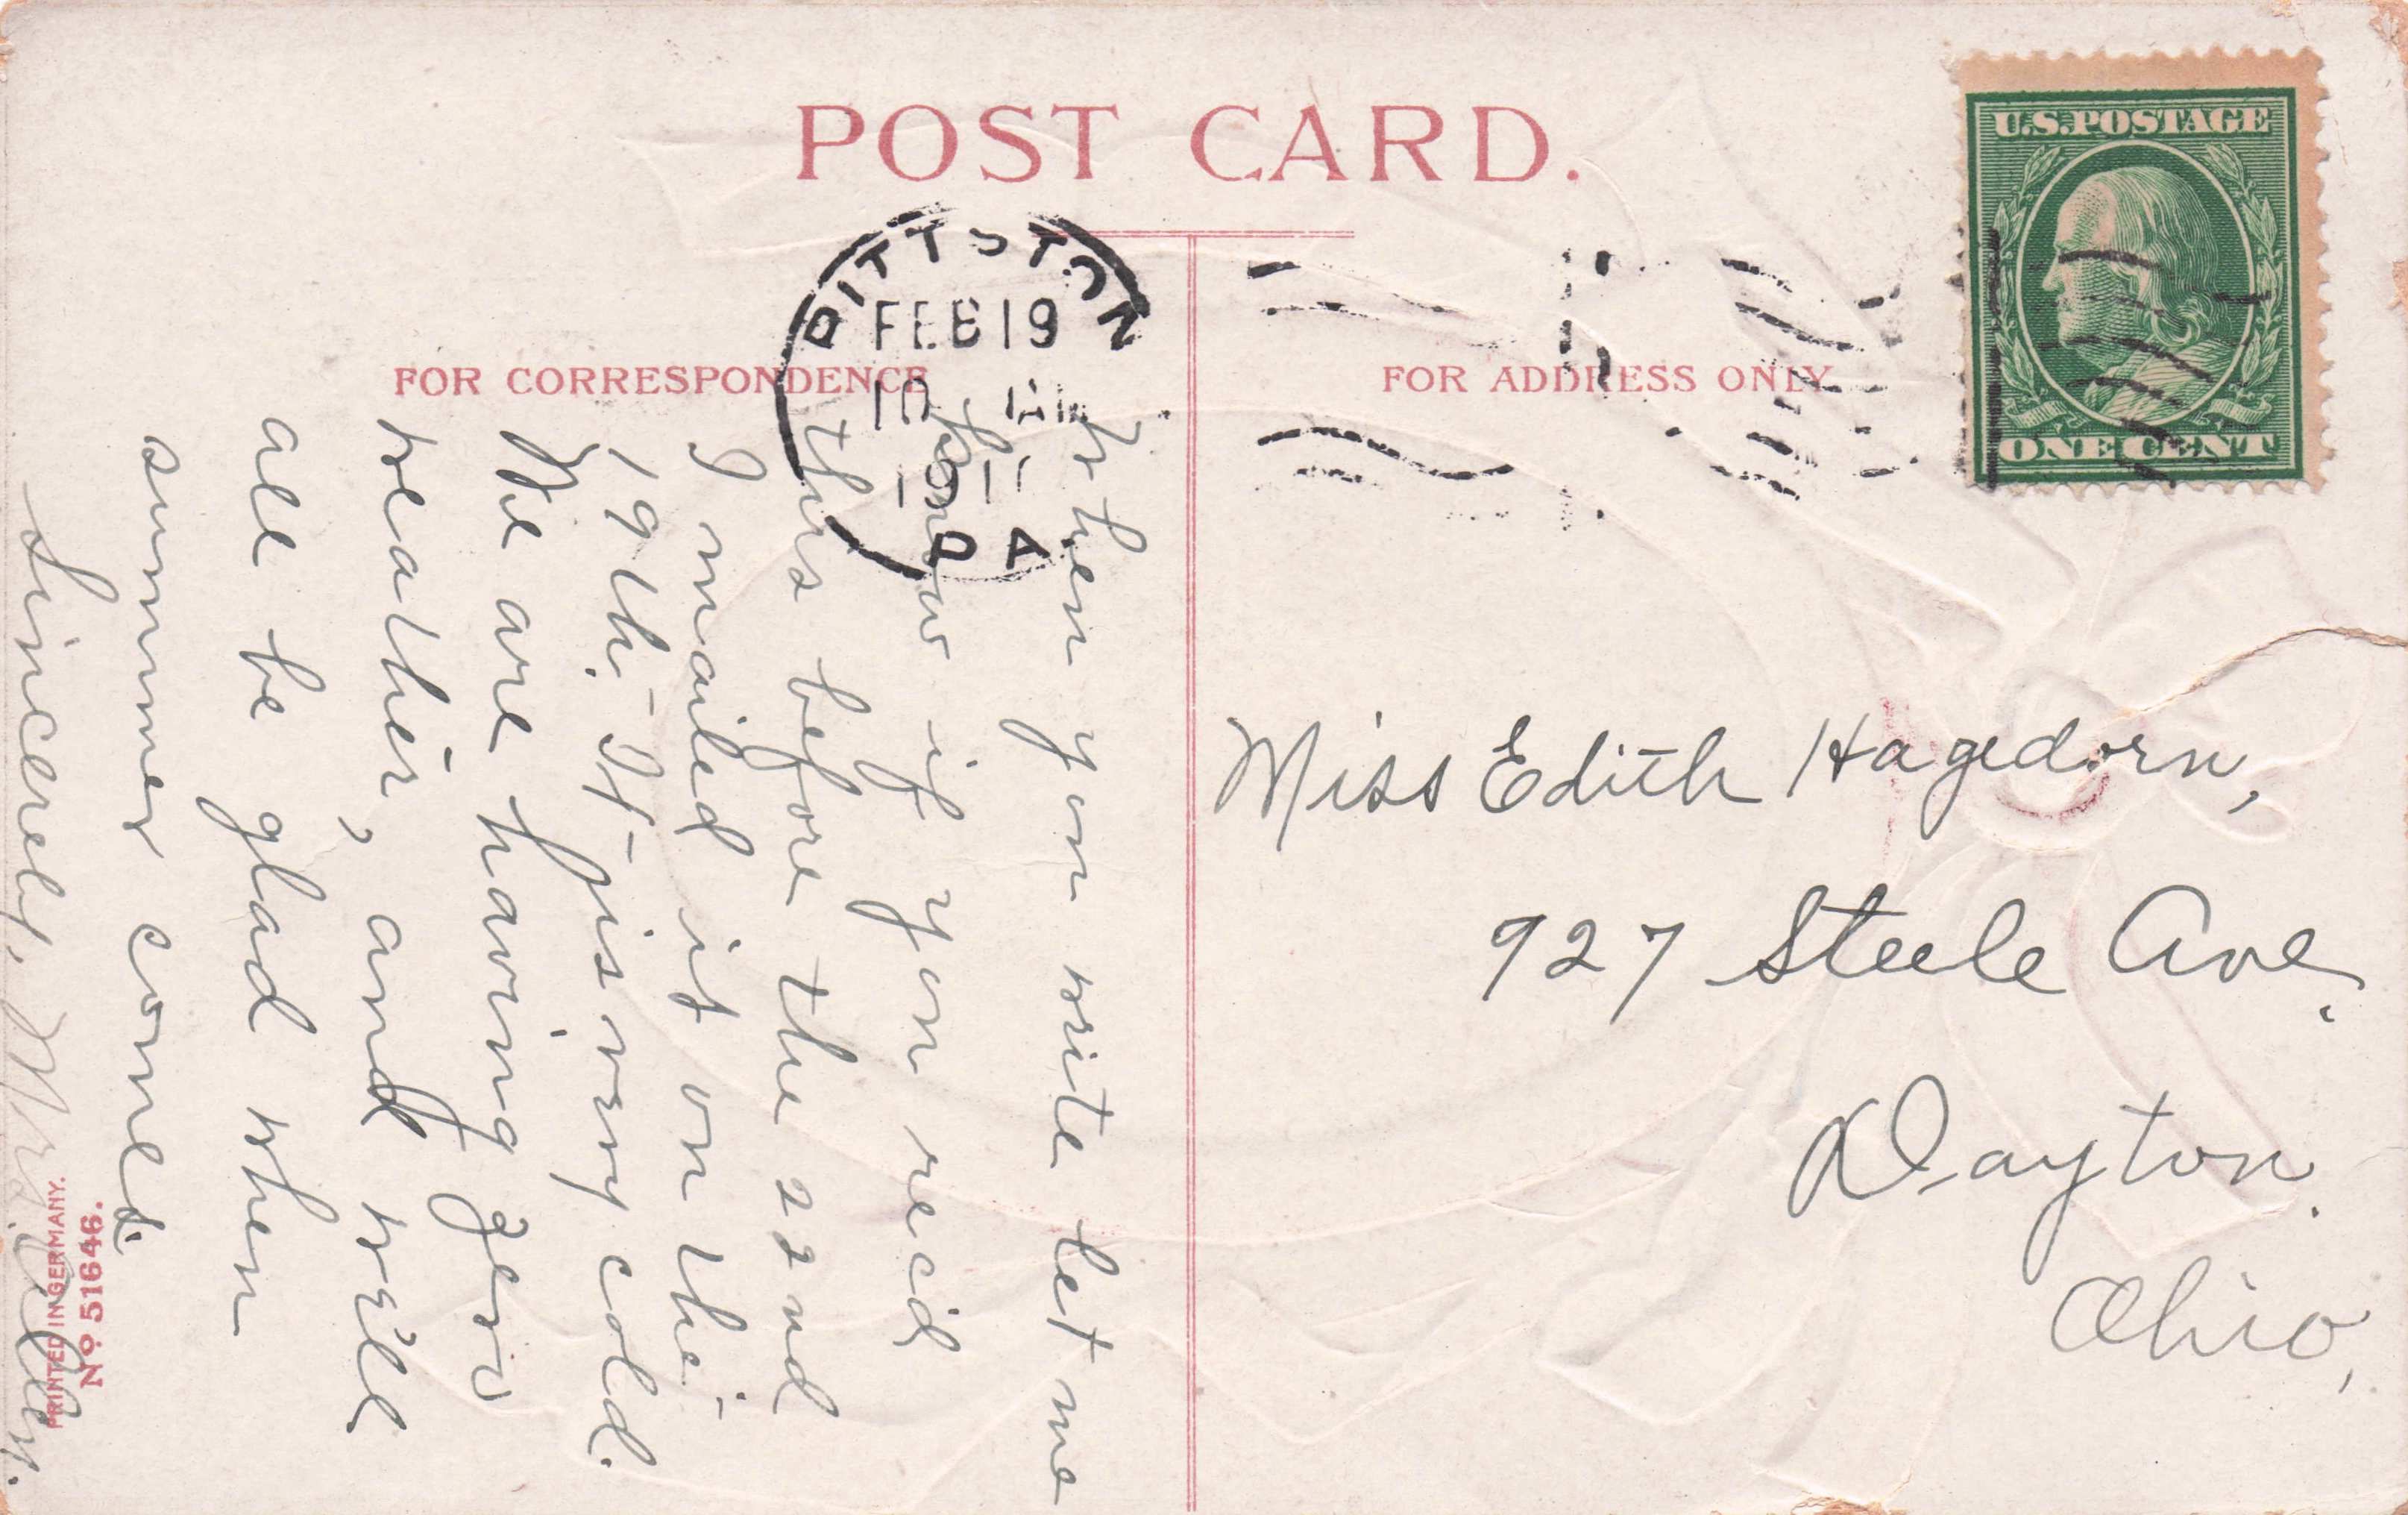 POST CARD.
U.S. POSTAGE
ONE CENT
PITTSTON
FEB 19
PA
FOR CORRESPONDENCE
FOR ADDRESS ONLY
When you write let me
know if you recd
this before the 22nd
I mailed it on the
19th. It is very cold.
We are having zero
weather, and will
all be glad when
summer comes.
Sincerely, Mrs.
Miss Edith Hagedorn,
927 Steele Ave.
Dayton.
Ohio,
PRINTED IN GERMANY.
No 51646.